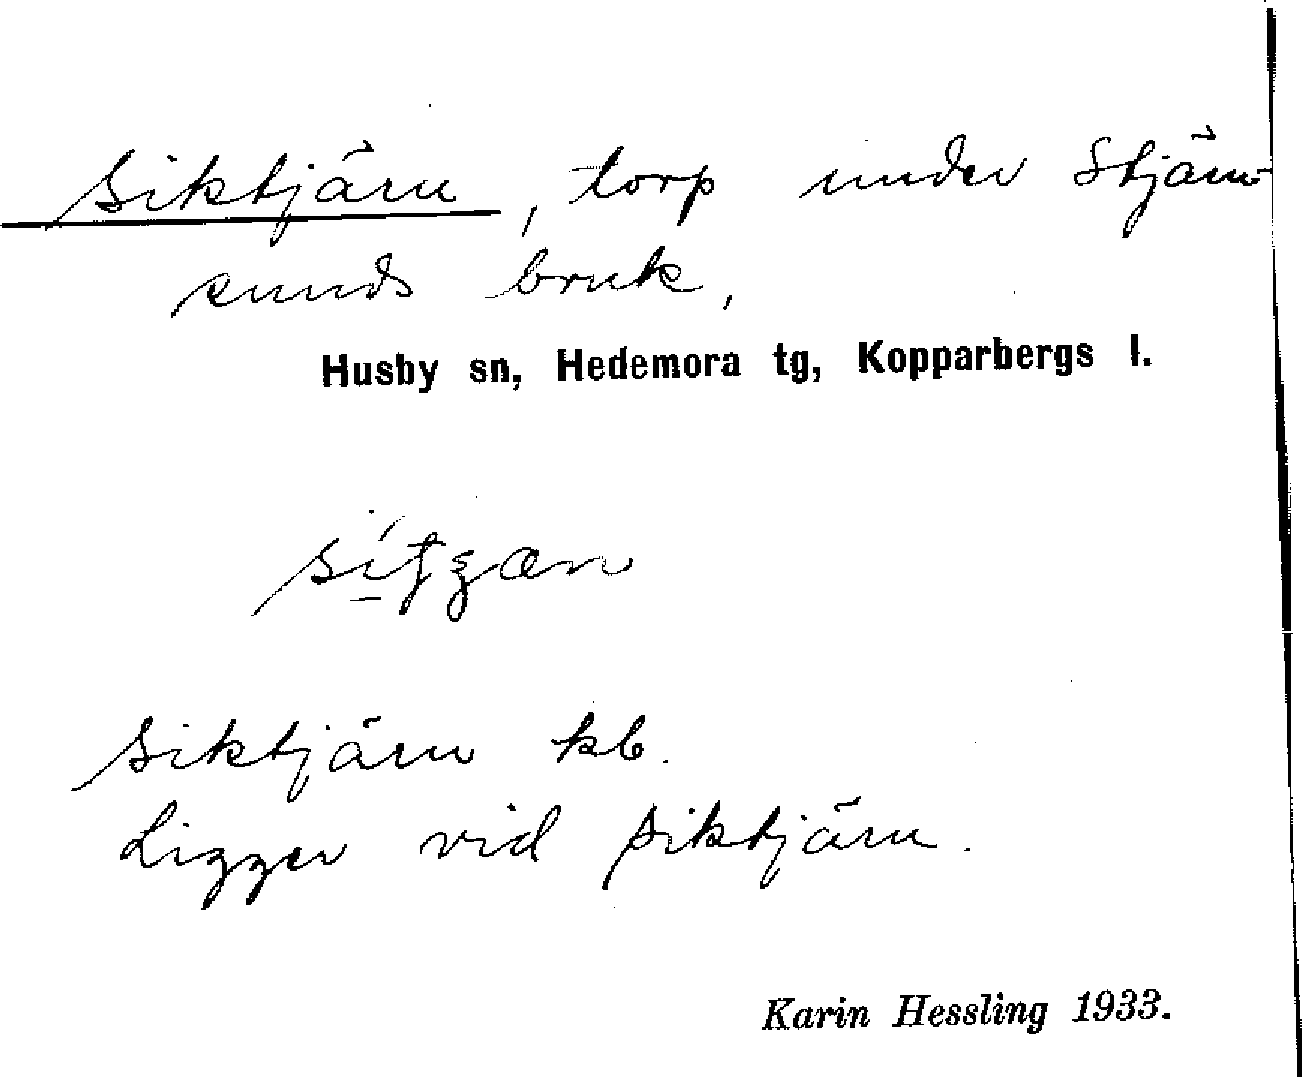 Siktjärn, torp under Stjärn-
sunds bruk,
Husby sn, Hedemora tg, Kopparbergs l.
Siktjärn kb.
Ligger vid Siktjärn.
Karin Hessling 1933.